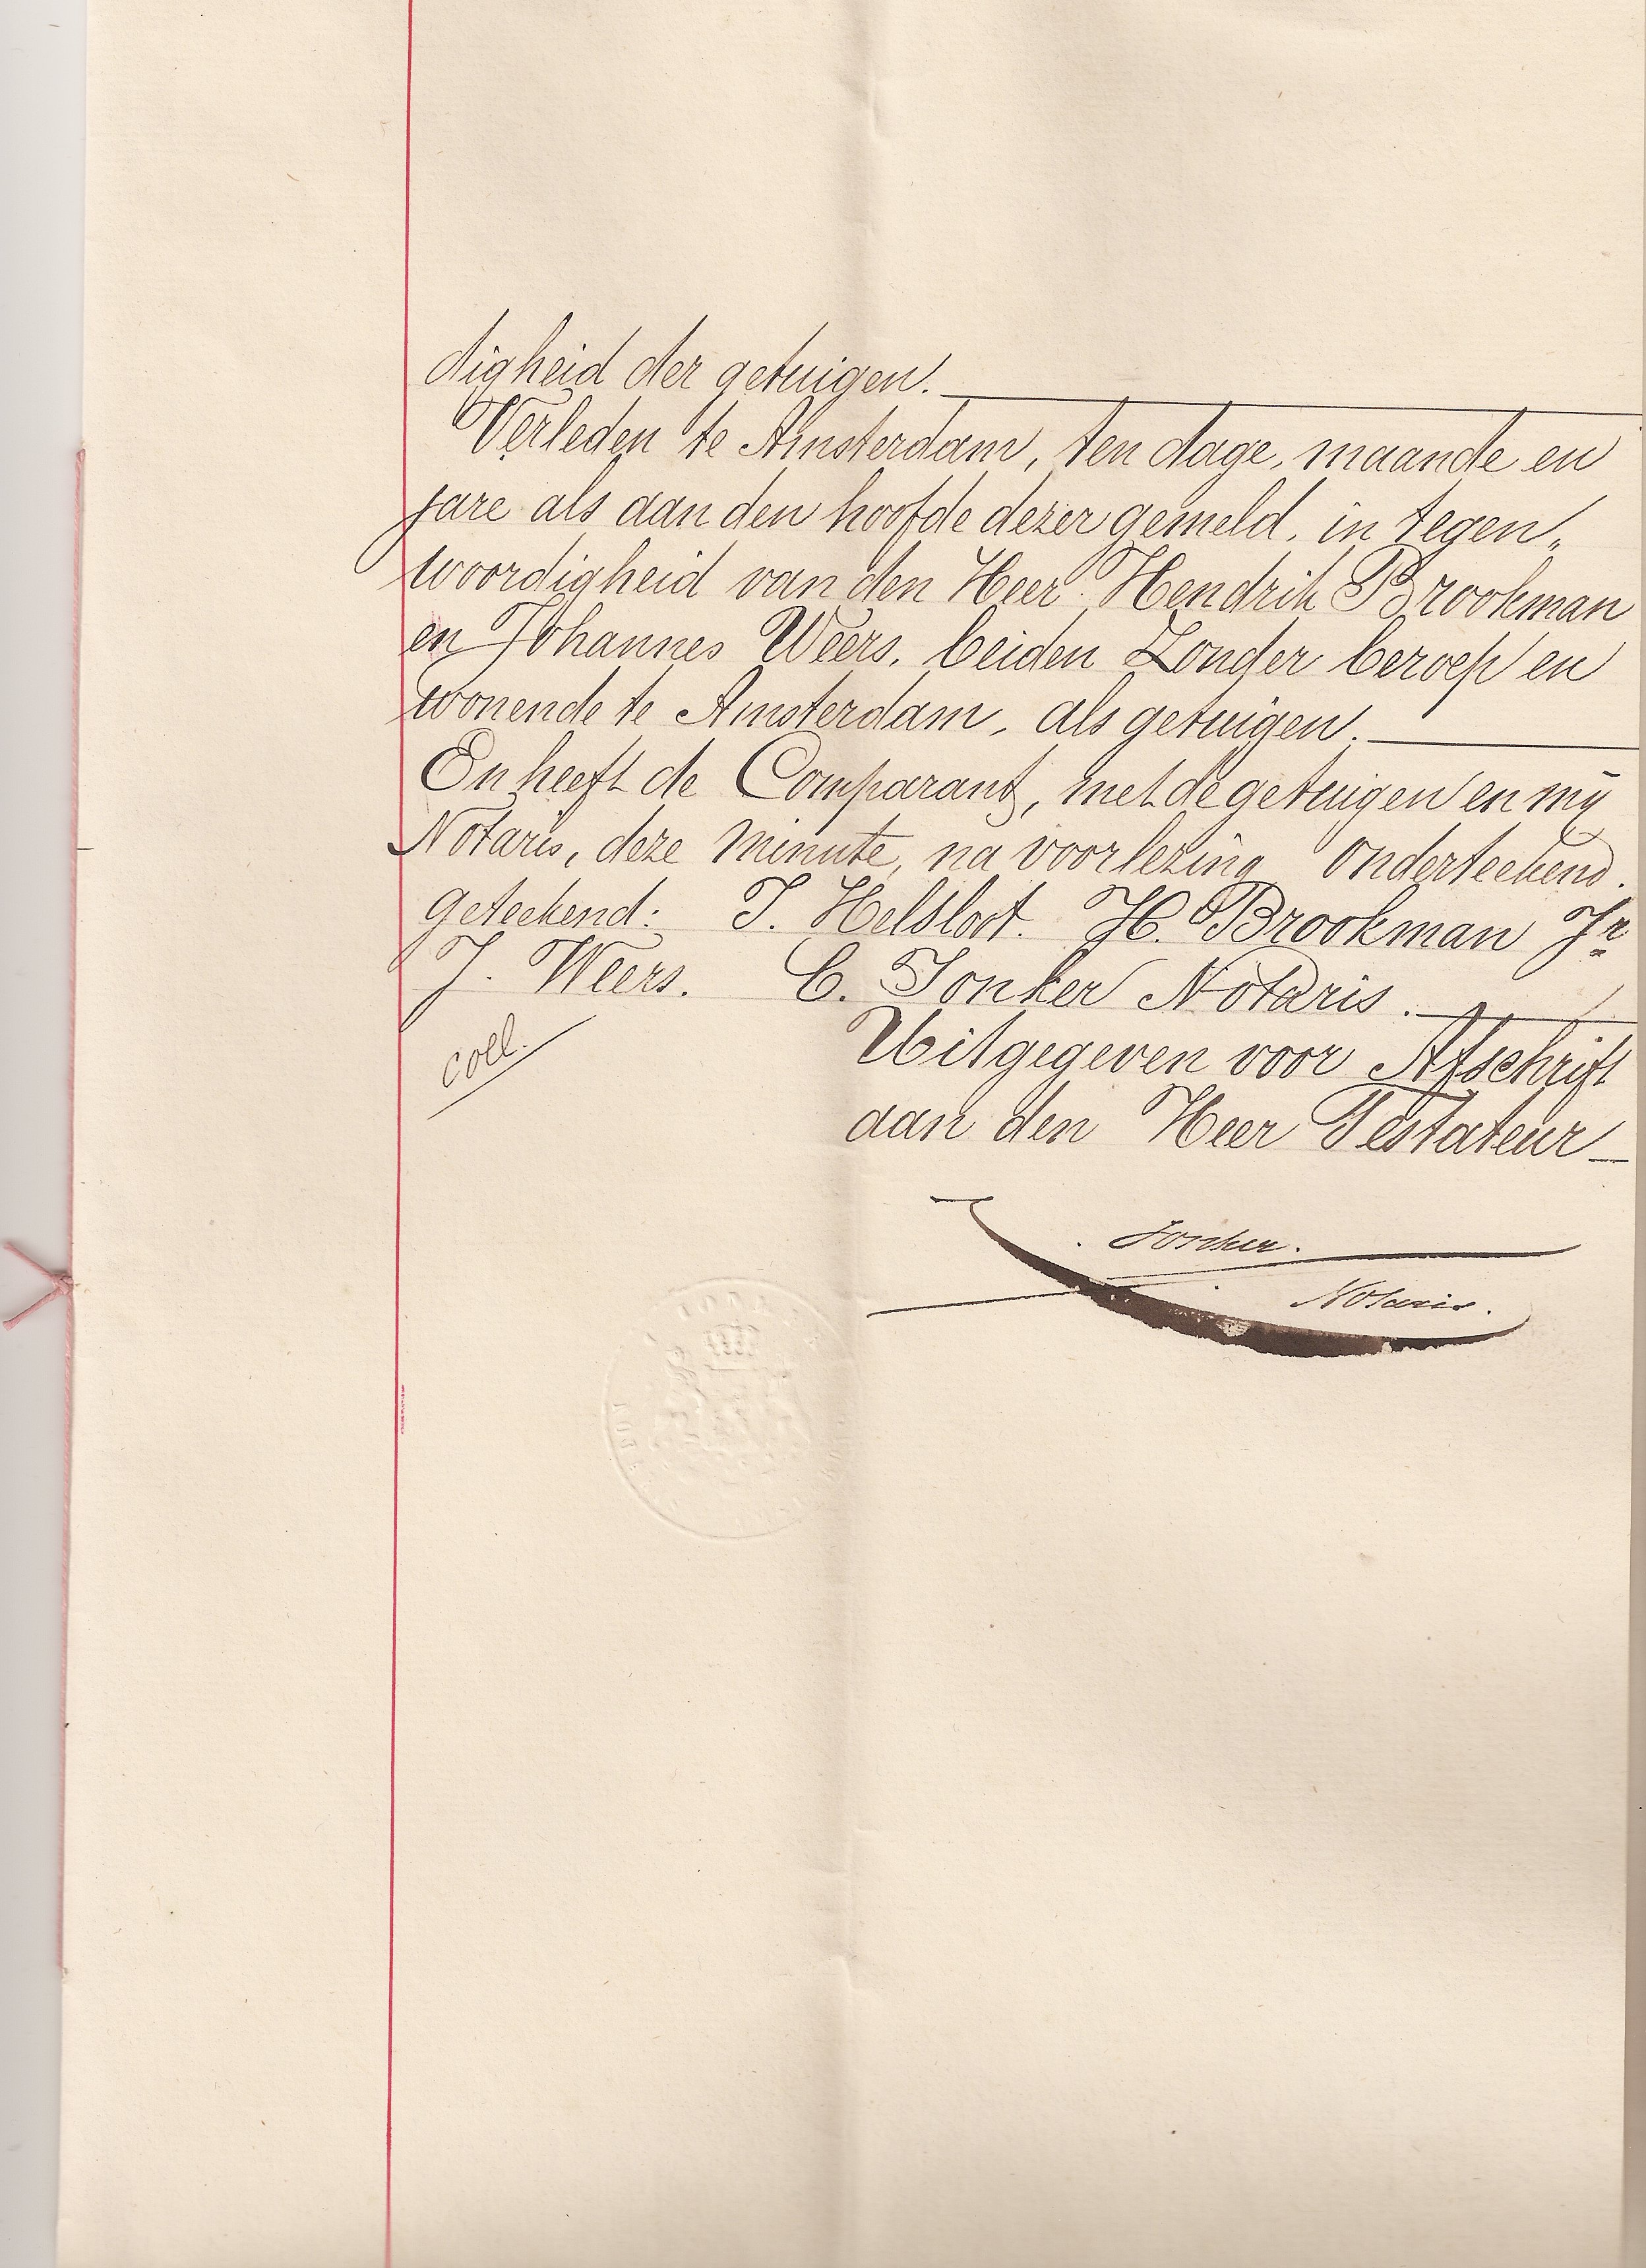 digheid der getuigen.
Verleden te Amsterdam, ten dage, maande en
jare als aan den hoofde dezer gemeld, in tegen„
woordigheid van den Heer Hendrik Brookman
en Johannes Weers, beiden Zonder beroep en
wonende te Amsterdam, als getuigen.
En heeft de Comparant, met de getuigen en mij
Notaris, deze minute, na voorlezing onderteekend.
geteekend: J. Helsloot. H. Brookman Jr
J. Weers. C. Jonker Notaris.
coll.
Uitgegeven voor Afschrift
aan den Heer Testateur
Jonker.
Notaris.